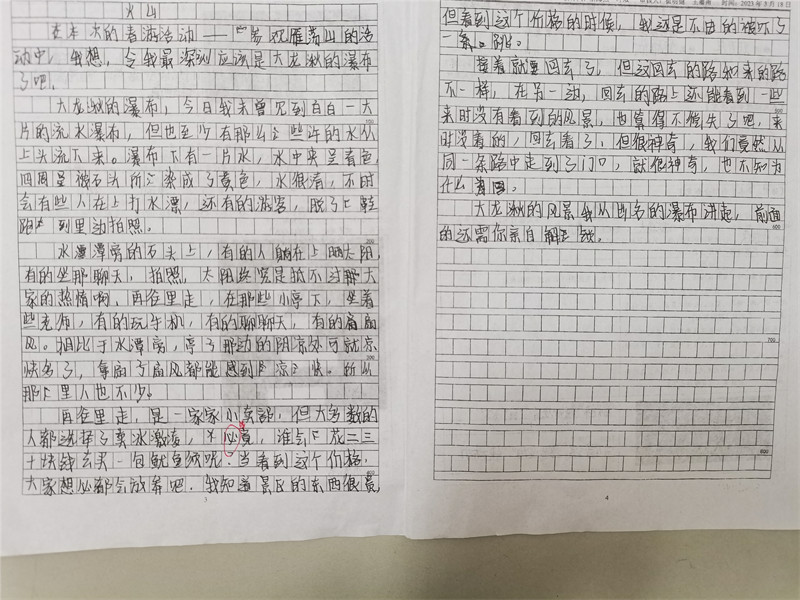 火山
在本次的春游活动——参观雁荡山的活
动中，我想，令我最深刻应该是大龙湫的瀑布
了吧。
大龙湫的瀑布，今日我未曾见到白白一大
片的流水瀑布，但也至少有那么些许的水从
上头流下来。瀑布下有一片水，水中央呈青色，
四周呈被石头所染成了黄色，水很清，不时
会有些人在上打水漂，还有的游客，脱了鞋
到里边拍照。
水潭潭旁的石头上，有的人躺在上晒太阳，
有的坐那聊天，拍照，太阳终究是抵不过那大
家的热情啊，再往里走，在那些小亭下，坐着
些老师，有的玩手机，有的聊聊天，有的扇扇
风。相比于水潭旁，亭子那边的阴凉处可就凉
快多了，每扇下扇风都能感到凉快。所以
那里人也不少。
再往里走，是一家家小卖部，但大多数的
人都选择了卖冰激凌，必竟，谁会花二三
十块钱去买一包鱿鱼须呢，当看到这个价格，
大家想必都会放弃吧，我知道景区的东西很贵，
3
但看到这个价格的时候，我还是不由的被吓了
一条。
接着就要回去了，但这回去的路和来的路
不一样，在另一边，回去的路上还能看到一些
来时没有看到的风景，也算得不错失了吧，来
时没看的，回去看了，但很神奇，我们竟然从
同一条路中走到了门口，就很神奇，也不知为
什么
大龙湫的风景我从出名的瀑布讲起，前面
的还需你亲自解
4
100
200
300
400
700
800